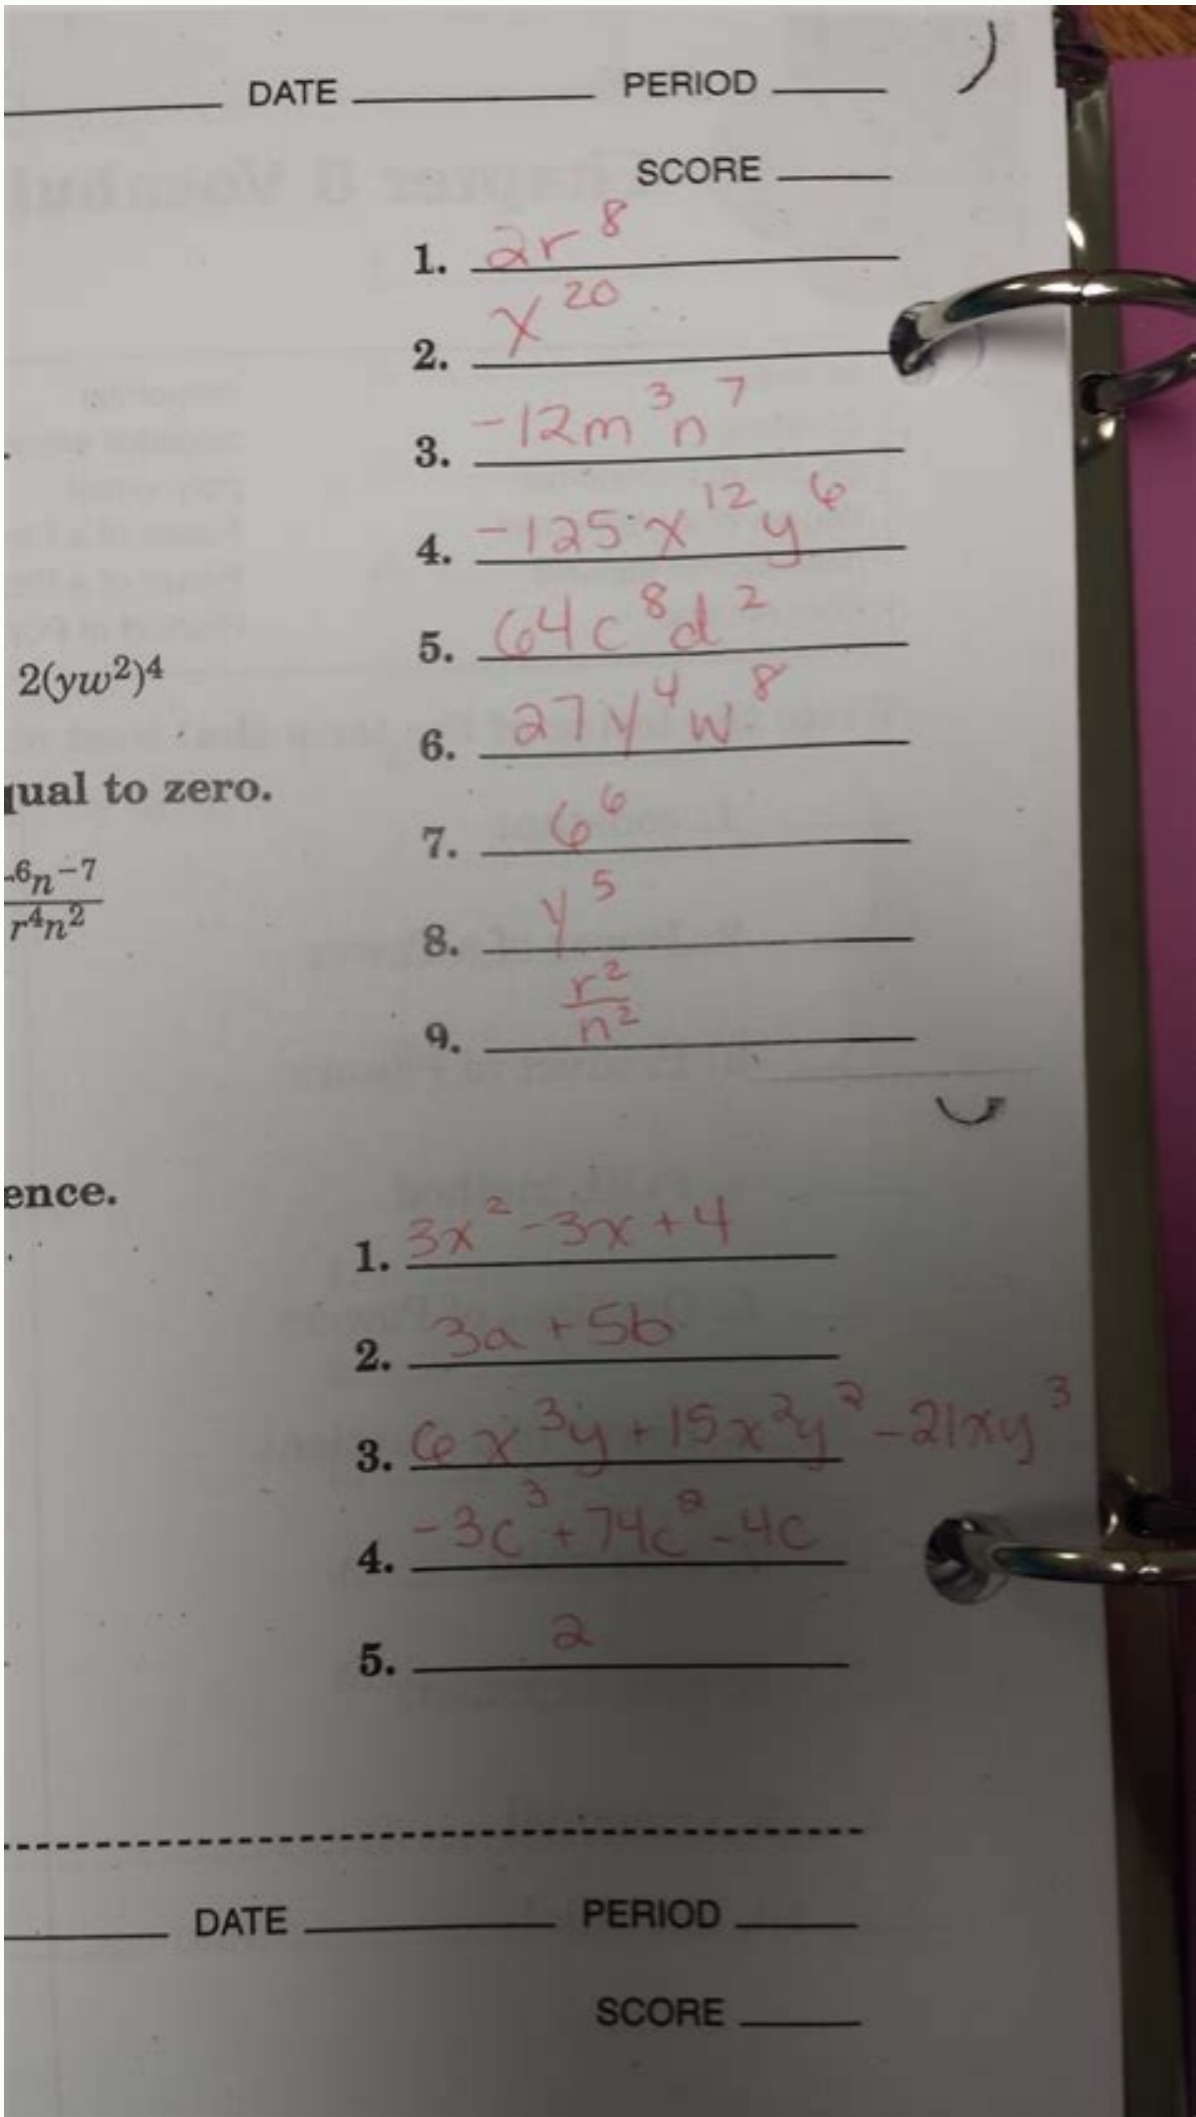 DATE ______ PERIOD ____
SCORE ____
1. 2r⁸
2. x²⁰
3. -12m³n⁷
4. -125x¹²y⁶
5. 64c⁸d²
2(yw²)⁴
6. 27y⁴w⁸
qual to zero.
7. 6⁶
-6n⁻⁷
r⁴n²
8. y⁵
9. r²/n²
ence.
1. 3x²-3x+4
2. 3a+5b
3. 6x³y+15x²y²-21xy³
4. -3c³+74c²-4c
5. 2
DATE ______ PERIOD ____
SCORE ____